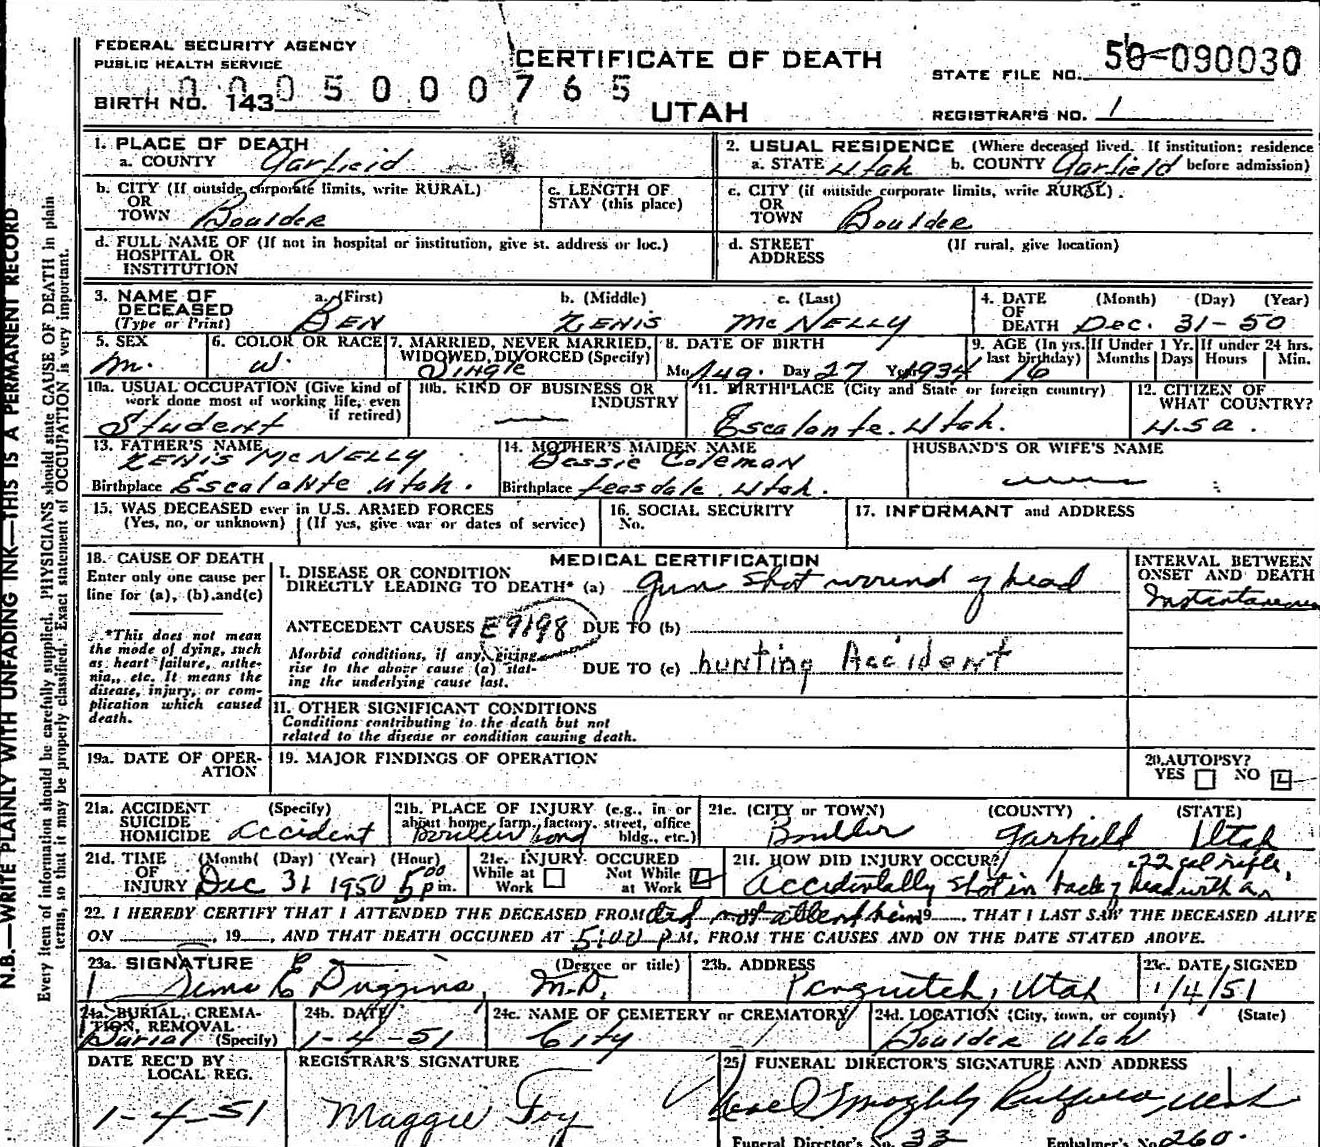 FEDERAL SECURITY AGENCY
PUBLIC HEALTH SERVICE
CERTIFICATE OF DEATH
STATE FILE NO. 50-090030
0005000765
BIRTH NO. 143
UTAH
REGISTRAR'S NO. 1
1. PLACE OF DEATH
a. COUNTY Garfield
2. USUAL RESIDENCE (Where deceased lived. If institution: residence before admission)
a. STATE Utah b. COUNTY Garfield
b. CITY (If outside corporate limits, write RURAL)
OR
TOWN Boulder
c. LENGTH OF
STAY (this place)
c. CITY (if outside corporate limits, write RURAL).
OR
TOWN Boulder
d. FULL NAME OF (If not in hospital or institution, give st. address or loc.)
HOSPITAL OR
INSTITUTION
d. STREET (If rural, give location)
ADDRESS
3. NAME OF DECEASED
(Type or Print)
a. (First) b. (Middle) c. (Last)
BEN ZENIS McNELLY
4. DATE OF DEATH (Month) (Day) (Year)
Dec. 31-50
5. SEX
m.
6. COLOR OR RACE
w.
7. MARRIED, NEVER MARRIED,
WIDOWED, DIVORCED (Specify)
Single
8. DATE OF BIRTH
Mo Aug. Day 27 Yr 1934
9. AGE (In yrs. last birthday) If Under 1 Yr. Months Days If under 24 hrs. Hours Min.
16
10a. USUAL OCCUPATION (Give kind of
work done most of working life, even
if retired)
Student
10b. KIND OF BUSINESS OR
INDUSTRY
—
11. BIRTHPLACE (City and State or foreign country)
Escalante. Utah.
12. CITIZEN OF
WHAT COUNTRY?
U.S.A.
13. FATHER'S NAME
ZENIS McNELLY
Birthplace Escalante Utah.
14. MOTHER'S MAIDEN NAME
Bessie Coleman
Birthplace Teasdale. Utah.
HUSBAND'S OR WIFE'S NAME
15. WAS DECEASED ever in U.S. ARMED FORCES
(Yes, no, or unknown) (If yes, give war or dates of service)
16. SOCIAL SECURITY
No.
17. INFORMANT and ADDRESS
18. CAUSE OF DEATH
Enter only one cause per
line for (a), (b), and (c)
*This does not mean
the mode of dying, such
as heart failure, asthe-
nia, etc. It means the
disease, injury, or com-
plication which caused
death.
MEDICAL CERTIFICATION
I. DISEASE OR CONDITION
DIRECTLY LEADING TO DEATH* (a) Gun shot wound of head
ANTECEDENT CAUSES E9198 DUE TO (b)
Morbid conditions, if any, giving
rise to the above cause (a) stat-
ing the underlying cause last.
DUE TO (c) hunting Accident
II. OTHER SIGNIFICANT CONDITIONS
Conditions contributing to the death but not
related to the disease or condition causing death.
INTERVAL BETWEEN
ONSET AND DEATH
Instantaneous
19a. DATE OF OPER-
ATION
19. MAJOR FINDINGS OF OPERATION
20. AUTOPSY?
YES NO
21a. ACCIDENT (Specify)
SUICIDE
HOMICIDE accident
21b. PLACE OF INJURY (e.g., in or
about home, farm, factory, street, office
bldg., etc.)
21c. (CITY or TOWN) (COUNTY) (STATE)
Boulder Garfield Utah
21d. TIME (Month) (Day) (Year) (Hour)
OF
INJURY Dec 31 1950 5 00 p m.
21e. INJURY OCCURED
While at Work Not While at Work
21f. HOW DID INJURY OCCUR?
.22 cal rifle,
Accidentally shot in back of head with a
22. I HEREBY CERTIFY THAT I ATTENDED THE DECEASED FROM did not attend him 19 , THAT I LAST SAW THE DECEASED ALIVE
ON , 19 , AND THAT DEATH OCCURED AT 5:00 P.M, FROM THE CAUSES AND ON THE DATE STATED ABOVE.
23a. SIGNATURE (Degree or title)
Sims E Duggins, M.D.
23b. ADDRESS
Panguitch, Utah
23c. DATE SIGNED
1/4/51
24a. BURIAL, CREMA-
TION, REMOVAL
(Specify)
Burial
24b. DATE
1-4-51
24c. NAME OF CEMETERY or CREMATORY
City
24d. LOCATION (City, town, or county) (State)
Boulder Utah
DATE REC'D BY
LOCAL REG.
1-4-51
REGISTRAR'S SIGNATURE
Maggie Foy
25 FUNERAL DIRECTOR'S SIGNATURE AND ADDRESS
Funeral Director's No. 33 Embalmer's No. 260.
N.B.—WRITE PLAINLY WITH UNFADING INK—THIS IS A PERMANENT RECORD
Every item of information should be carefully supplied. PHYSICIANS should state CAUSE OF DEATH in plain
terms, so that it may be properly classified. Exact statement of OCCUPATION is very important.